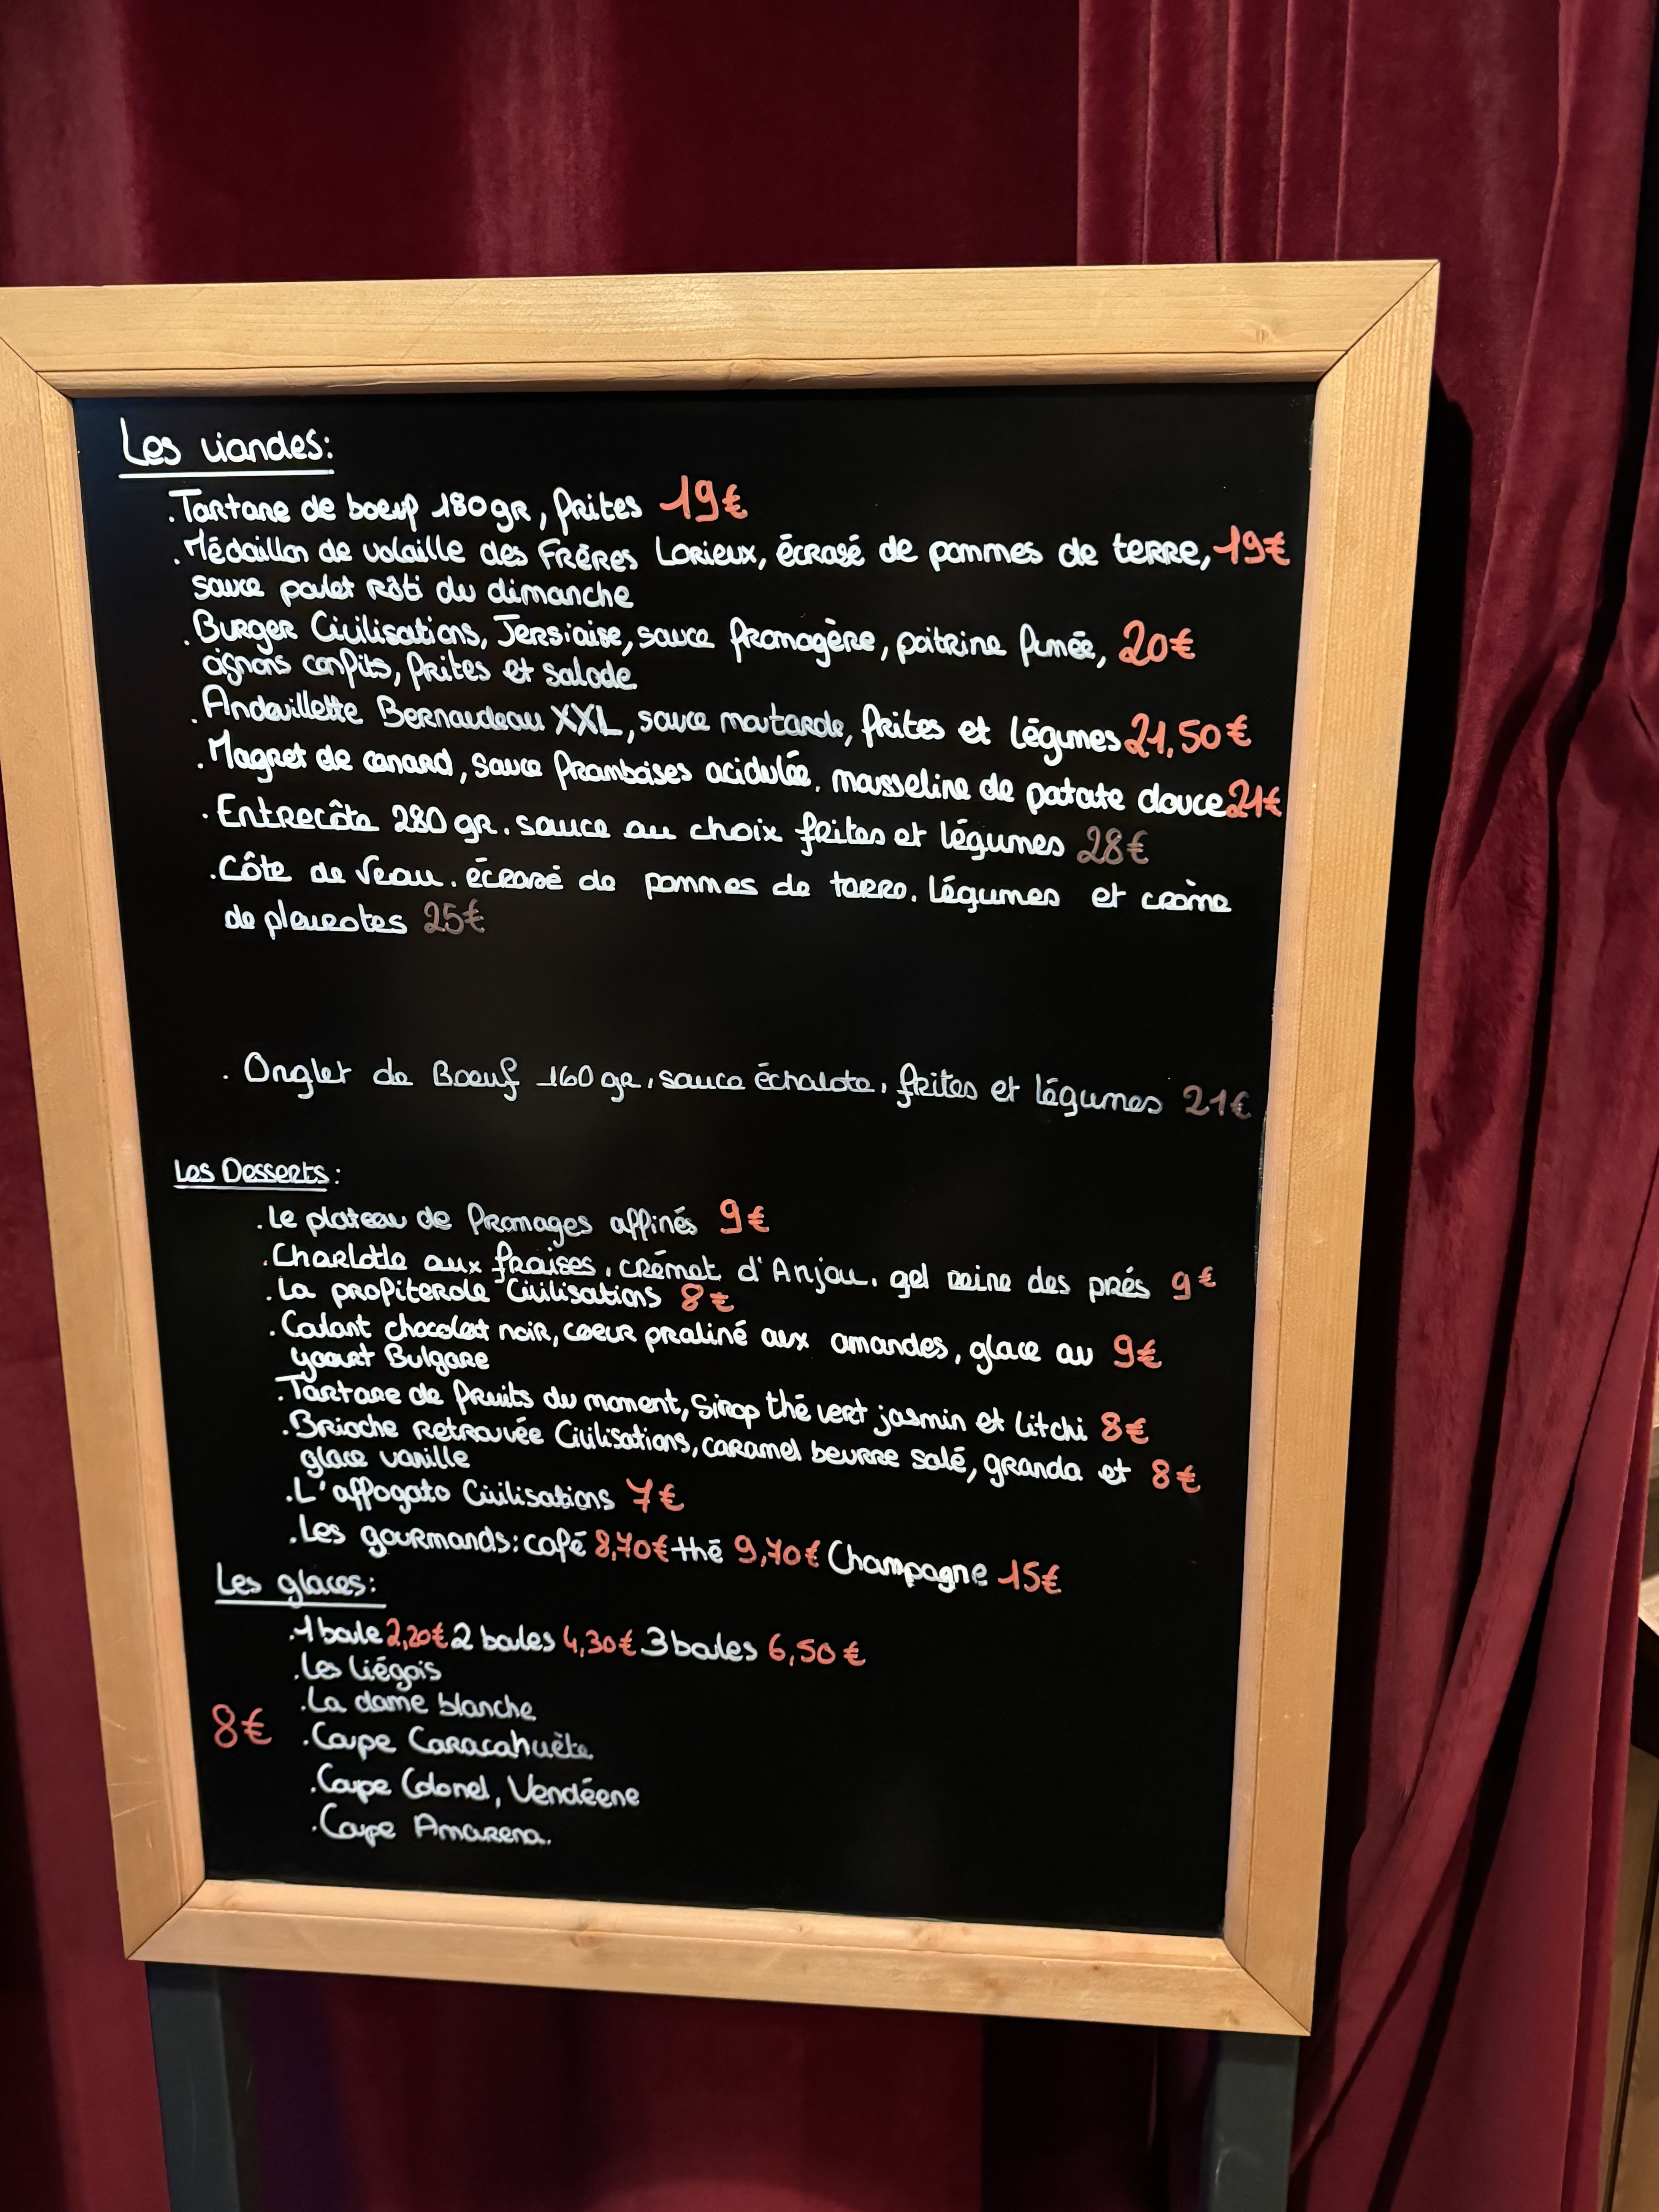 Les viandes:
.Tartare de boeuf 180gr, frites 19€
.Médaillon de volaille des Frères Lorieux, écrasé de pommes de terre, 19€
sauce poulet rôti du dimanche
.Burger Civilisations, Jersiaise, sauce fromagère, poitrine fumée, 20€
oignons confits, frites et salade
.Andouillette Bernaudeau XXL, sauce moutarde, frites et légumes 21,50€
.Magret de canard, sauce framboises acidulée, mousseline de patate douce 21€
.Entrecôte 280 gr. sauce au choix frites et légumes 28€
.Côte de Veau. écrasé de pommes de terre. légumes et crème
de pleurotes 25€
. Onglet de Boeuf 160 gr, sauce échalote, frites et légumes 21€
Les Desserts:
.Le plateau de fromages affinés 9€
.Charlotte aux fraises, crémet d'Anjou. gel reine des prés 9€
.La profiterole Civilisations 8€
.Coulant chocolat noir, coeur praliné aux amandes, glace au 9€
yaourt Bulgare
.Tartare de fruits du moment, sirop thé vert jasmin et litchi 8€
.Brioche retrouvée Civilisations, caramel beurre salé, granola et 8€
glace vanille
.L'affogato Civilisations 7€
.Les gourmands: café 8,70€ thé 9,70€ Champagne 15€
Les glaces:
.1 boule 2,20€ 2 boules 4,30€ 3 boules 6,50€
.Les liégois
.La dame blanche
8€ .Coupe Caracahuète
.Coupe Colonel, Vendéene
.Coupe Amarena.